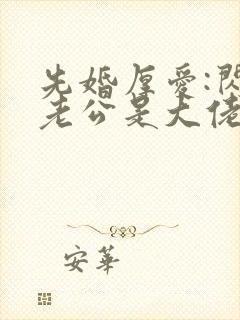 先婚厚愛:閃
老公是大佬
安華